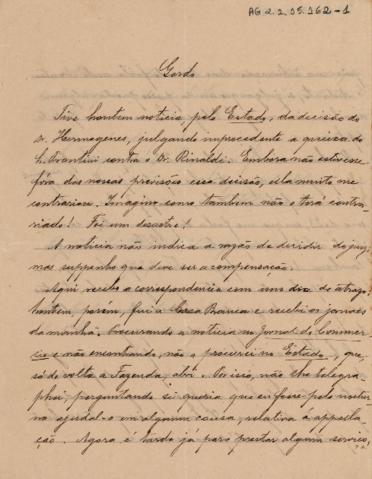 AG 2.2.15.162-1
Gordo
Tive hontem noticia pelo Estado, da decisão do
dr. Hermogenes, julgando improcedente a queixa do
contra o Dr. Rinaldi. Embora não estivesse
fóra das nossas previsões essa decisão, ella muito me
contrariou. Imagino como tambem não o terá contra-
riado! Foi um desastre!
A noticia não indica a razão de decidir do juiz,
mas supponho que deve ser a compensação.
Aqui recebo a correspondencia com um dia de atrazo;
hontem, porém, fui a Casa Branca e recebi os jornaes
da manhã. Procurando a noticia no Jornal do Commer-
cio e não encontrando, não a procurei no Estado, que
só de volta a Fazenda, abri. Por isso, não lhe telegra-
phei, perguntando si queria que eu fosse pelo nocturno
ajudal-o em alguma causa, relativa a appella-
ção. Agora é tarde já para prestar algum serviço,